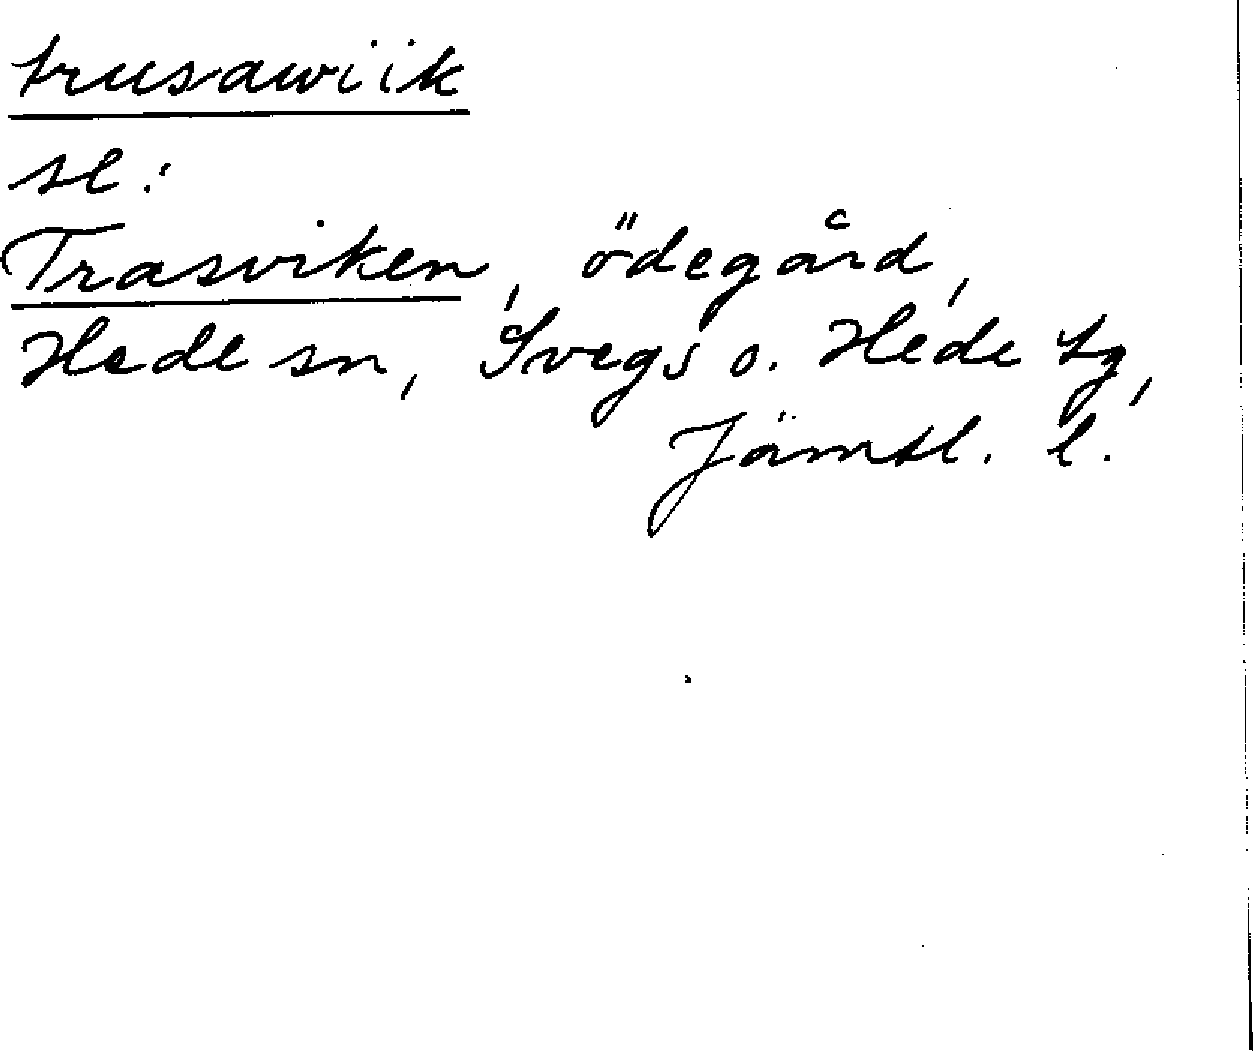 trusawiik
se:
Trasviken, ödegård,
Hede sn, Svegs o. Hede tg,
Jämtl. l.